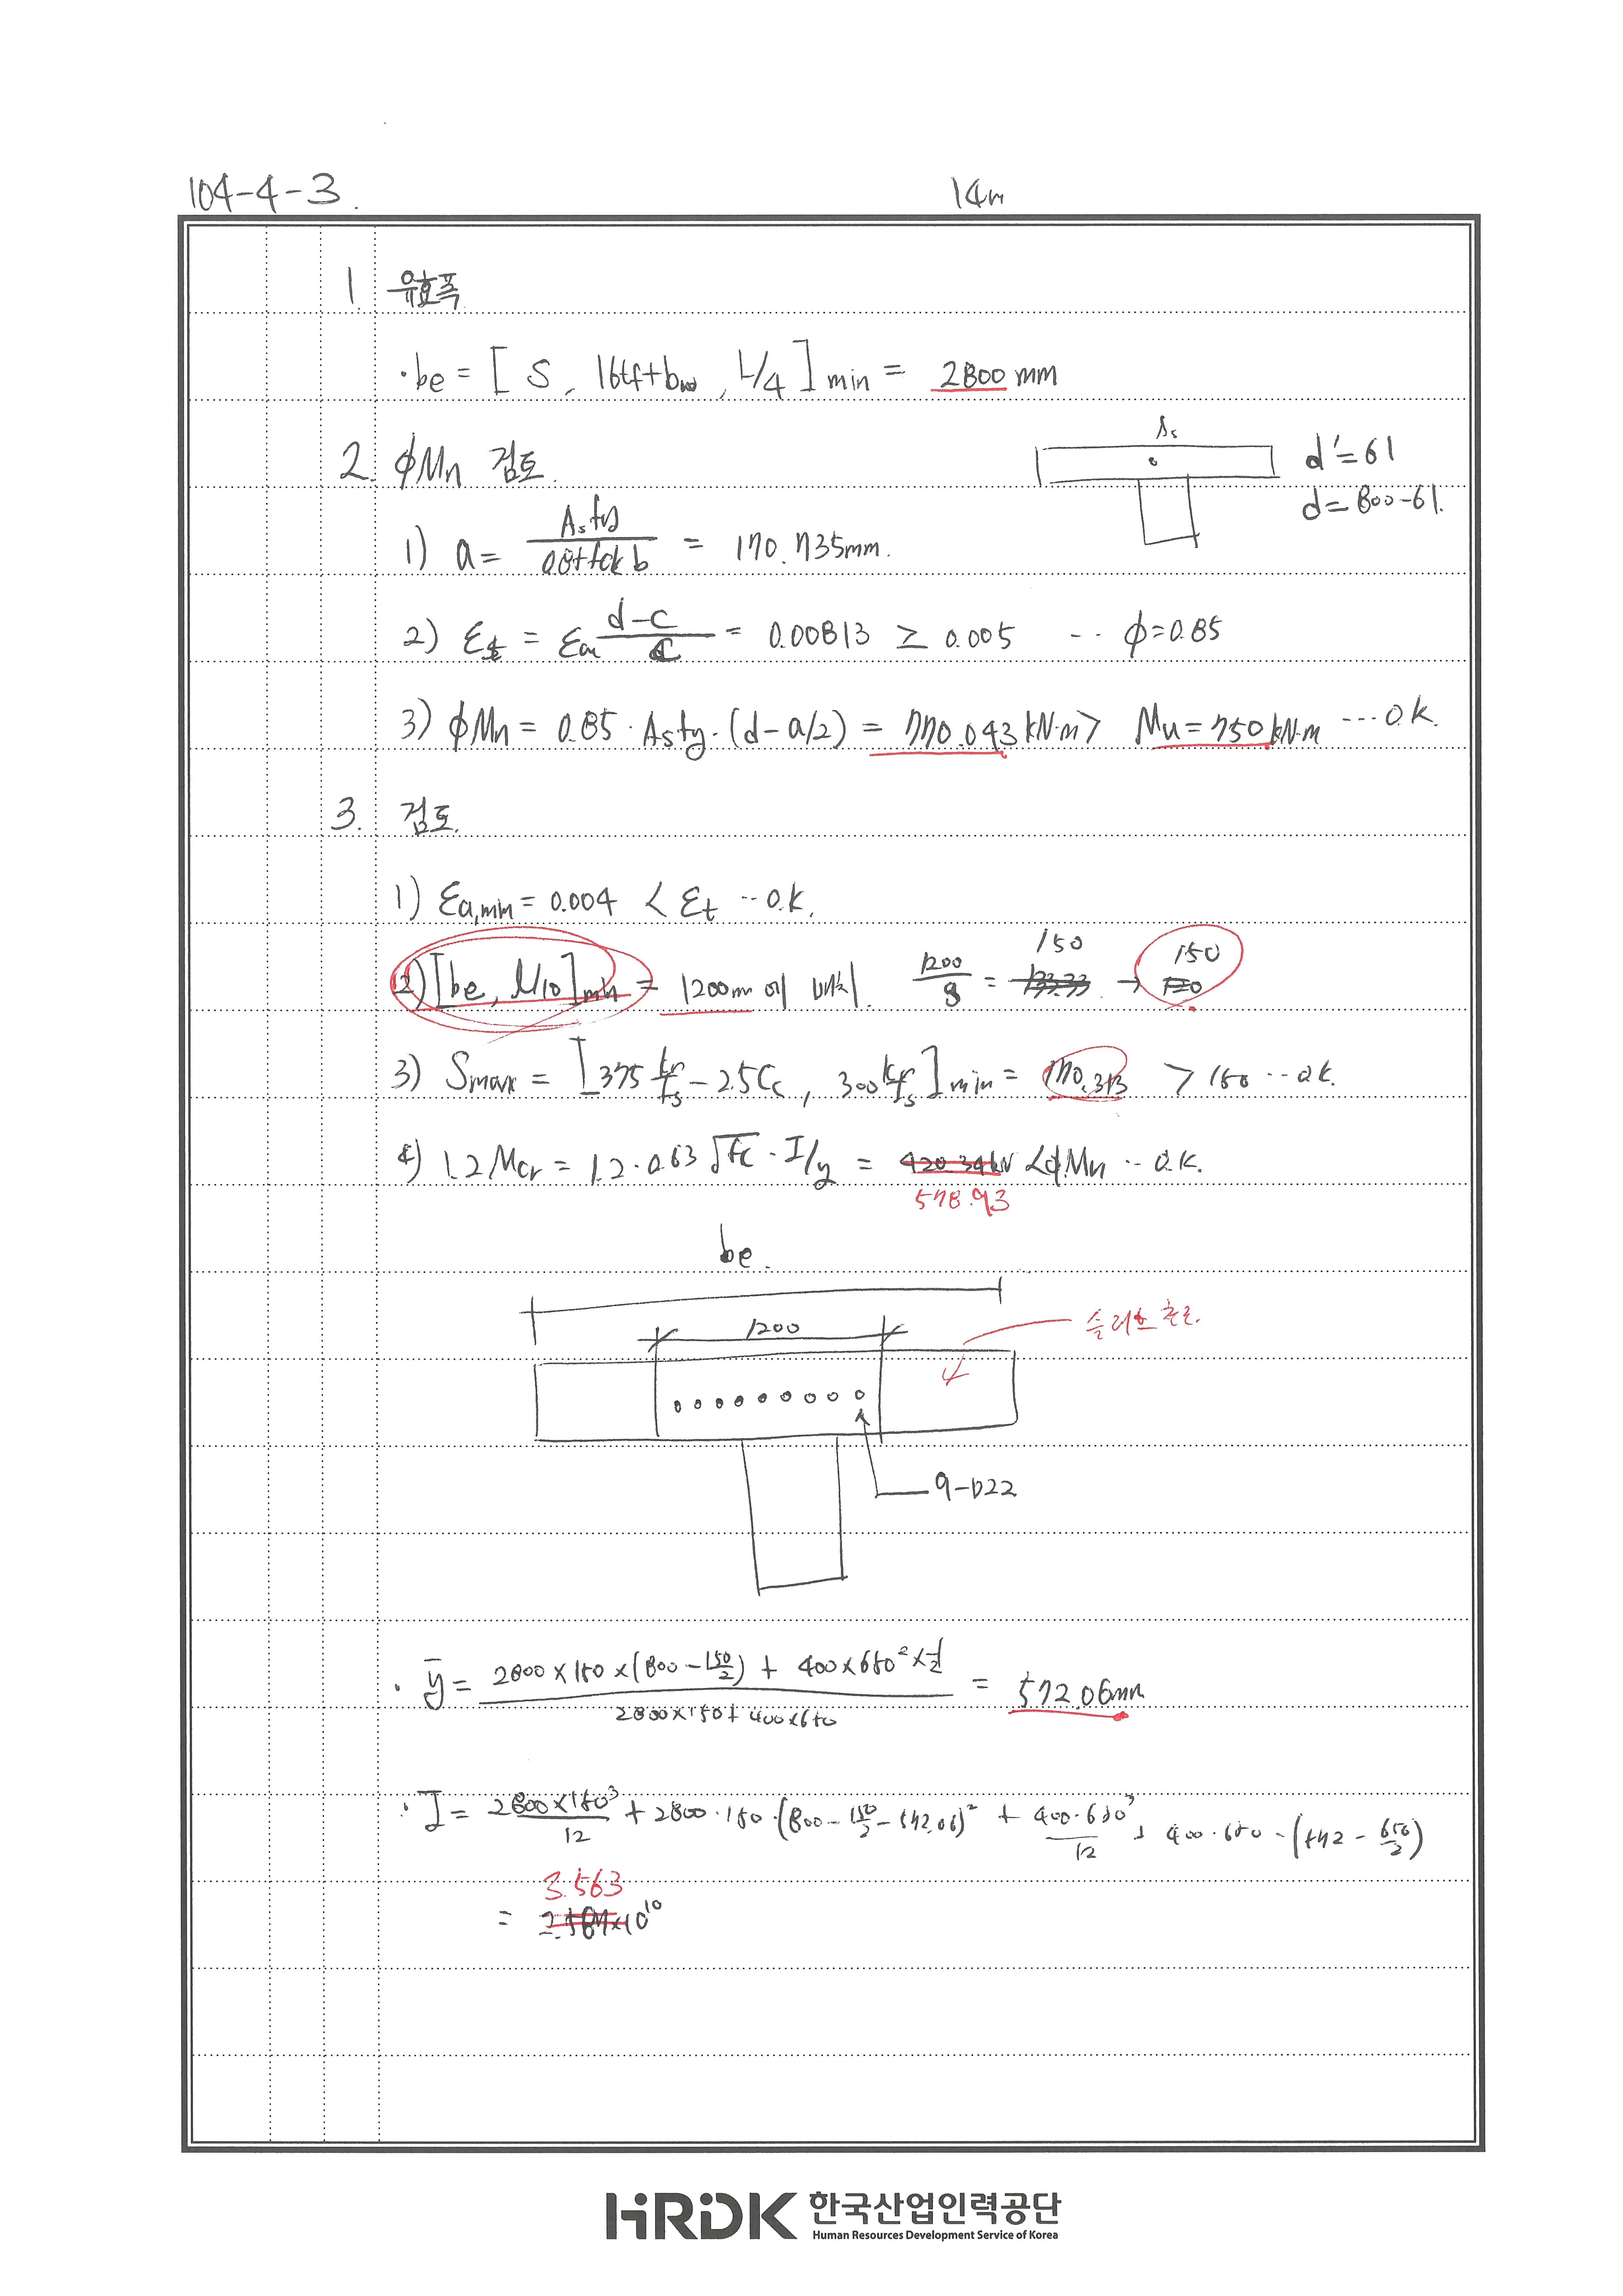 104-4-3.
14m
1. 유효폭
· be = [ S, 16tf+bw, L/4 ] min = 2800 mm
2. φMn 검토.
As
d'=61
d=800-61.
1) a = As fy / 0.85 fck b = 170.735mm.
2) εt = εcu (d-c)/c = 0.00813 ≥ 0.005 ·· φ=0.85
3) φMn = 0.85 · As fy · (d-a/2) = 770.043 kN·m > Mu=750kN·m ···O.K.
3. 검토.
1) εa,min = 0.004 < εt ··O.K.
2) [be, l/10]min = 1200mm 에 배치. 1200/8 = 133.33 150 → 120 150
3) Smax = [375 kcr/fs - 2.5Cc, 300 kcr/fs] min = 170.313 > 150 ··O.K.
4) 1.2Mcr = 1.2·0.63 √fc · I/y = 420.34kN < φMn ··O.K.
578.93
be.
1200
9-D22
· ȳ = 2800×150×(800-150/2) + 400×650²×1/2 / 2800×150+400×650 = 572.06mm
· I = 2800×150³/12 + 2800·150·(800-150/2-572.06)² + 400·650³/12 + 400·650·(572-650/2)
3.563
= ×10¹⁰
HRDK 한국산업인력공단
Human Resources Development Service of Korea